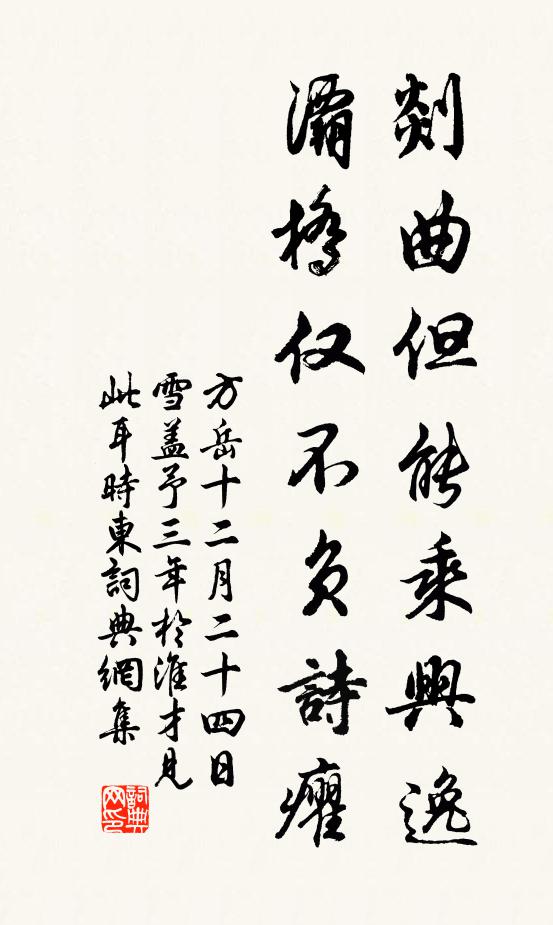 剡曲但能乘興逸
灞橋仅不負詩癯
方岳十二月二十四日
雪蓋予三年於淮才見
此耳時東詞典網集
詞典
网印